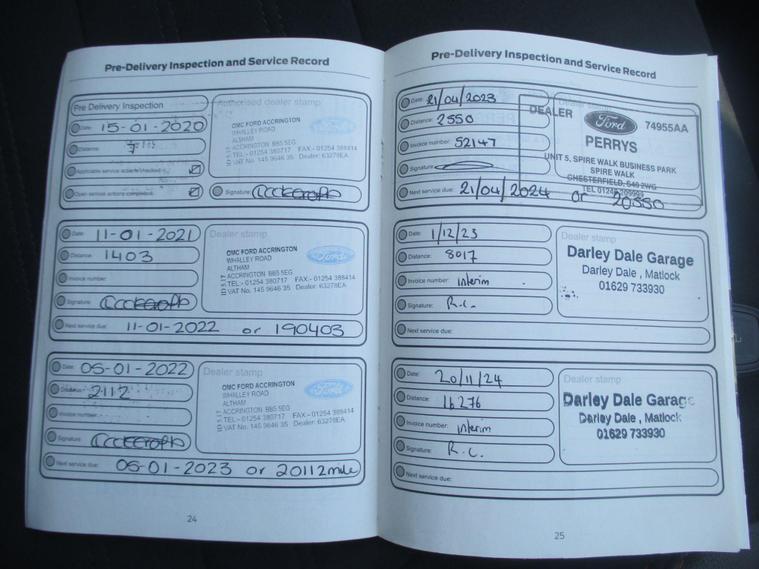 Pre-Delivery Inspection and Service Record
Pre Delivery Inspection
Authorised dealer stamp
Date: 15-01-2020
Distance: 7
Applicable service actions checked
Open service actions completed
OMC FORD ACCRINGTON
WHALLEY ROAD
ALTHAM
ACCRINGTON BB5 5EG
TEL:- 01254 380717 FAX:- 01254 388414
VAT No. 145 9646 35 Dealer: 63278EA
Ford
Signature:
Date: 11-01-2021
Distance: 1403
Invoice number:
Signature:
Next service due: 11-01-2022 or 190403
Dealer stamp
OMC FORD ACCRINGTON
WHALLEY ROAD
ALTHAM
ACCRINGTON BB5 5EG
TEL:- 01254 380717 FAX:- 01254 388414
VAT No. 145 9646 35 Dealer: 63278EA
ID 5.17
Ford
Date: 05-01-2022
Distance: 2112
Invoice number:
Signature:
Next service due: 05-01-2023 or 20112mile
Dealer stamp
OMC FORD ACCRINGTON
WHALLEY ROAD
ALTHAM
ACCRINGTON BB5 5EG
TEL:- 01254 380717 FAX:- 01254 388414
VAT No. 145 9646 35 Dealer: 63278EA
ID 5.17
Ford
24
Pre-Delivery Inspection and Service Record
Date: 21/04/2023
Distance: 2550
Invoice number: 52147
Signature:
Next service due: 21/04/2024 or 20550
DEALER
Ford
74955AA
PERRYS
UNIT 5, SPIRE WALK BUSINESS PARK
SPIRE WALK
CHESTERFIELD, S40 2WG
Date: 1/12/23
Distance: 8017
Invoice number: interim
Signature: R.C.
Next service due:
Dealer stamp
Darley Dale Garage
Darley Dale , Matlock
01629 733930
Date: 20/11/24
Distance: 16276
Invoice number: interim
Signature: R.C.
Next service due:
Dealer stamp
Darley Dale Garage
Darley Dale , Matlock
01629 733930
25